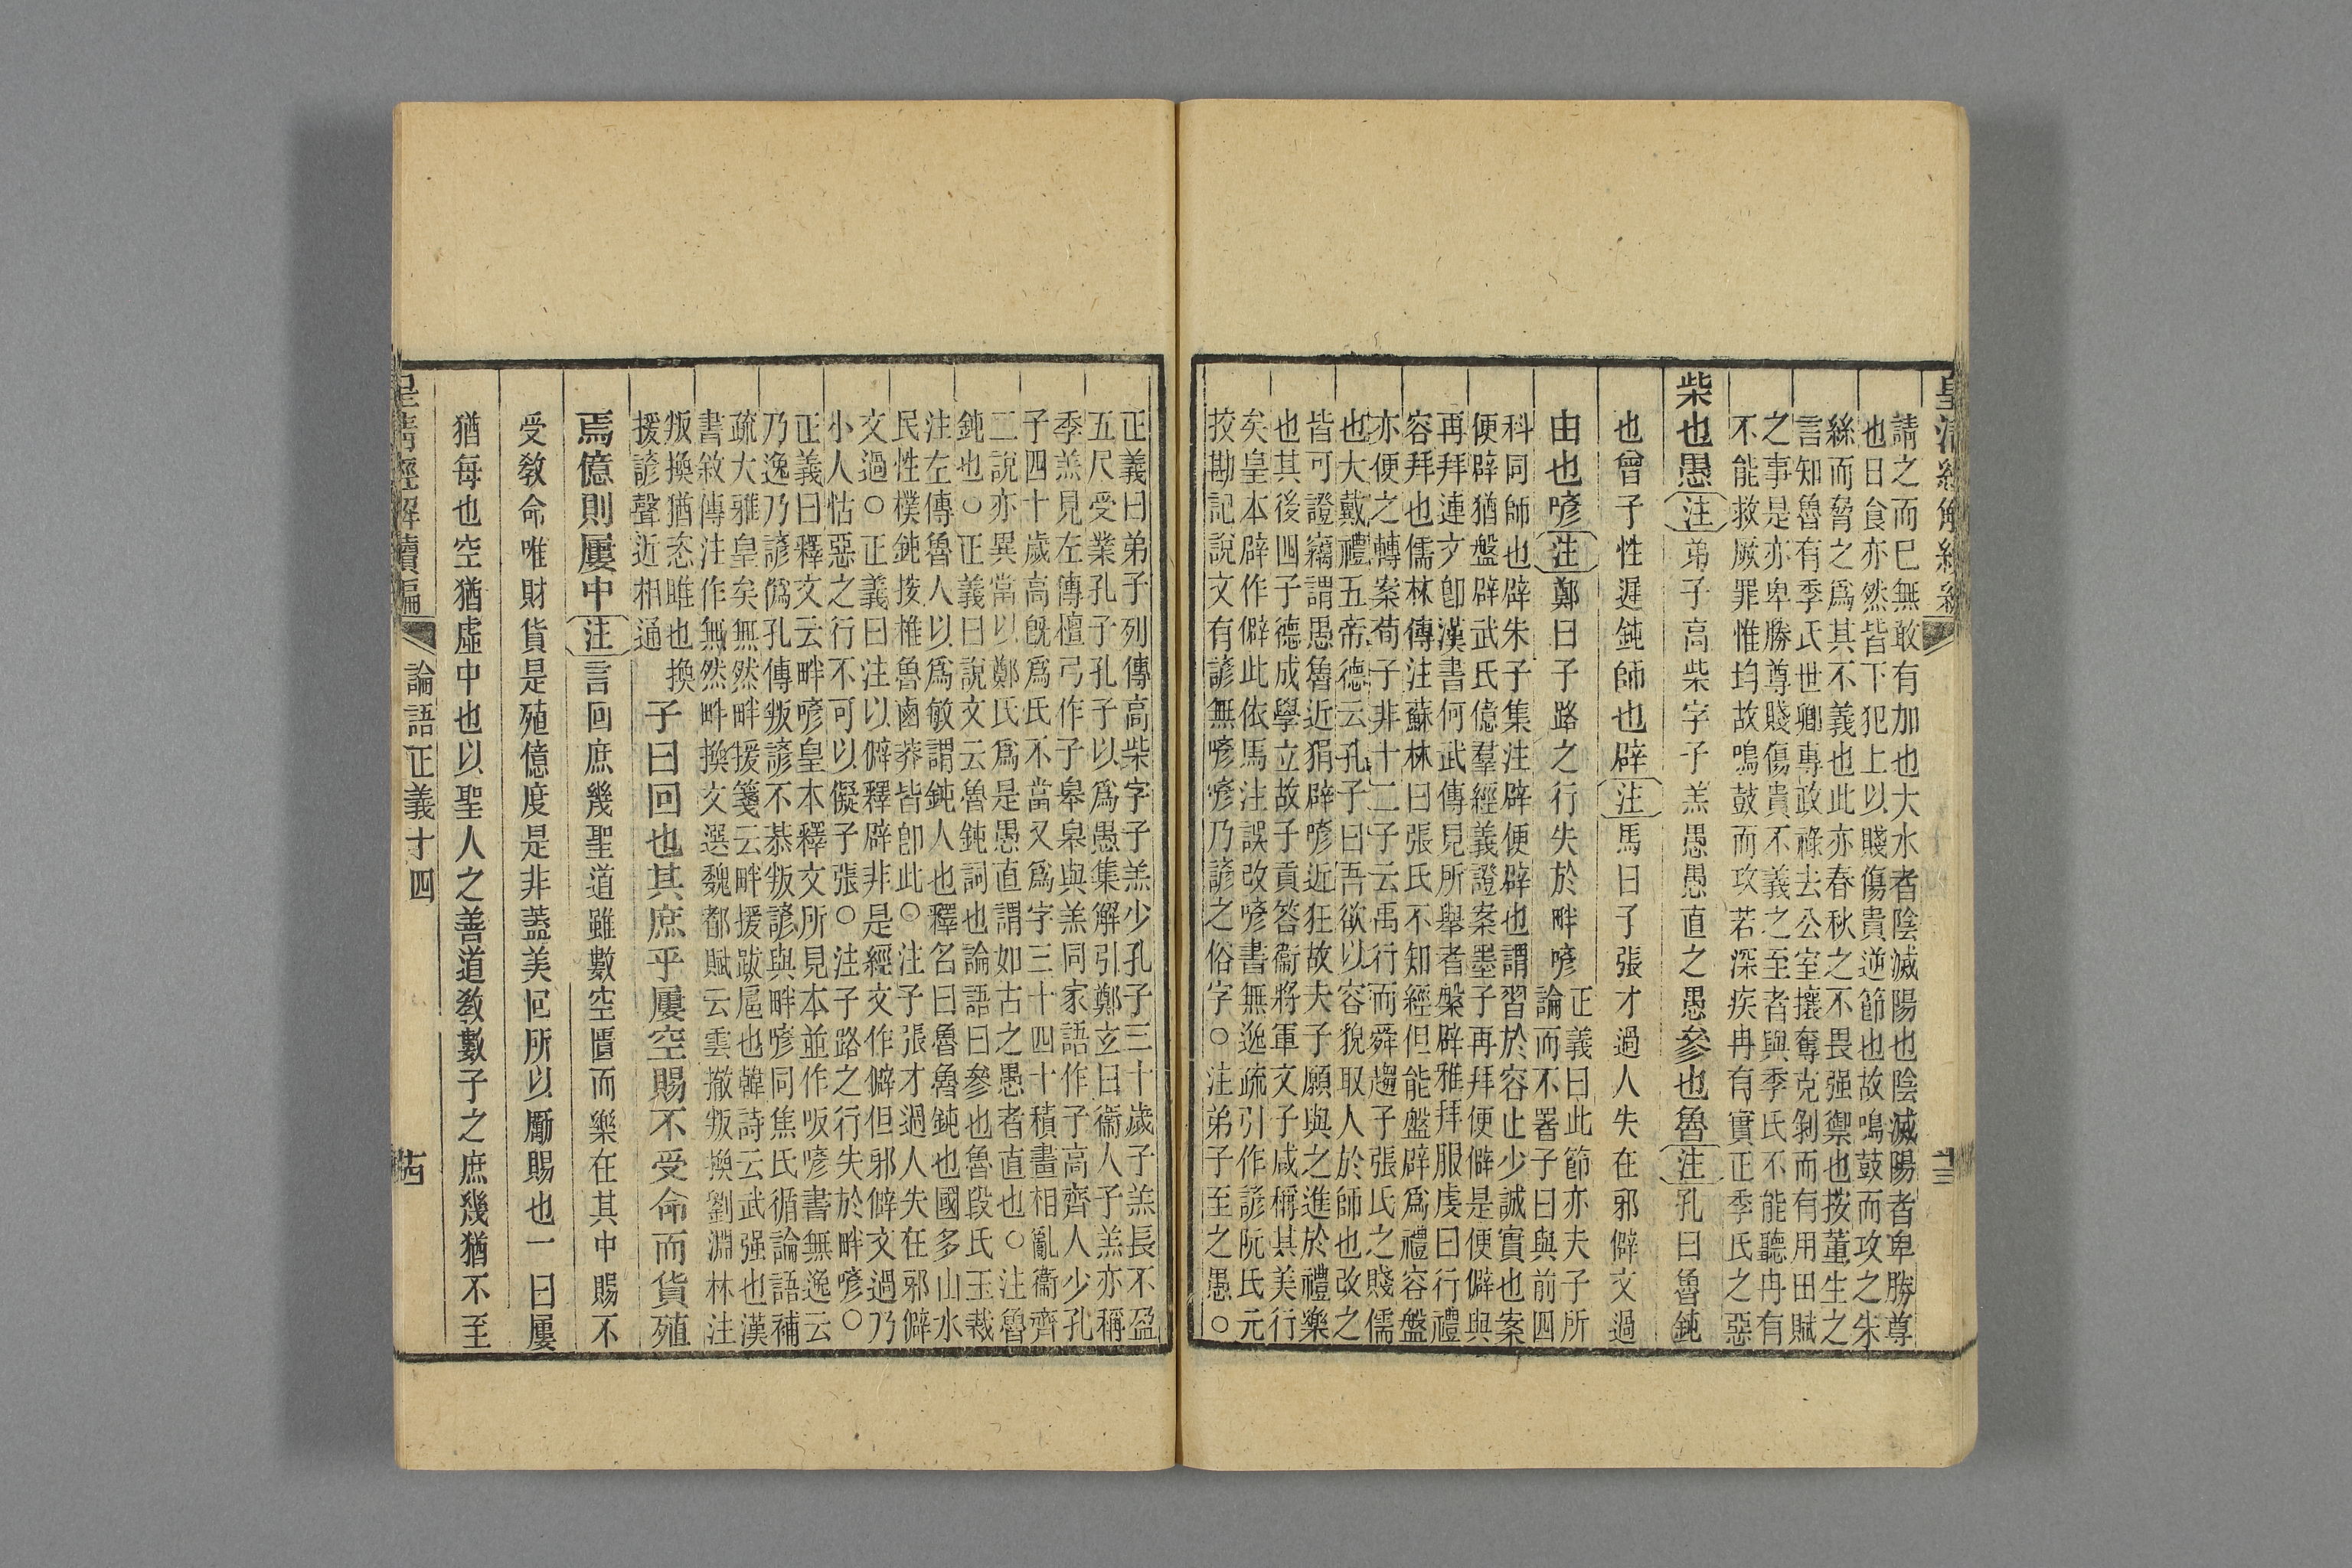 皇清經解續編
十三
請之而巳無敢有加也大水者陰滅陽也陰滅陽者卑勝尊
也日食亦然皆下犯上以賤傷貴逆節也故鳴鼓而攻之朱
絲而脅之爲其不義也此亦春秋之不畏强禦也按董生之
言知魯有季氏世卿專政祿去公室攘奪克剝而有用田賦
之事是亦卑勝尊賤傷貴不義之至者與季氏不能聽冉有
不能救厥罪惟均故鳴鼓而攻若深疾冉有實正季氏之惡
柴也愚注弟子高柴字子羔愚愚直之愚參也魯注孔曰魯鈍
也曾子性遲鈍師也辟注馬曰子張才過人失在邪僻文過
由也喭注鄭曰子路之行失於畔喭
正義曰此節亦夫子所
論而不署子曰與前四
科同師也辟朱子集注辟便辟也謂習於容止少誠實也案
便辟猶盤辟武氏億羣經義證案墨子再拜便僻是便僻與
再拜連文卽漢書何武傳見所舉者槃辟雅拜服虔曰行禮
容拜也儒林傳注蘇林曰張氏不知經但能盤辟爲禮容盤
亦便之轉案荀子非十二子云禹行而舜趨子張氏之賤儒
也大戴禮五帝德云孔子曰吾欲以容貌取人於師也改之
皆可證竊謂愚魯近狷辟喭近狂故夫子願與之進於禮樂
也其後四子德成學立故子貢答衞將軍文子咸稱其美行
矣皇本辟作僻此依馬注誤改喭書無逸疏引作諺阮氏元
挍勘記說文有諺無喭喭乃諺之俗字○注弟子至之愚○
正義曰弟子列傳高柴字子羔少孔子三十歲子羔長不盈
五尺受業孔子孔子以爲愚集解引鄭玄曰衞人子羔亦稱
季羔見左傳檀弓作子皋皋與羔同家語作子高齊人少孔
子四十歲高旣爲氏不當又爲字三十四十積畫相亂衞齊
二說亦異當以鄭氏爲是愚直謂如古之愚者直也○注魯
鈍也○正義曰說文云魯鈍詞也論語曰參也魯段氏玉裁
注左傳魯人以爲敏謂鈍人也釋名曰魯魯鈍也國多山水
民性樸鈍按椎魯鹵莽皆卽此○注子張才過人失在邪僻
文過○正義曰注以僻釋辟非是經文作僻但邪僻文過乃
小人怙惡之行不可以儗子張○注子路之行失於畔喭○
正義曰釋文云畔喭皇本釋文所見本並作㕫喭書無逸云
乃逸乃諺僞孔傳叛諺不恭叛諺與畔喭同焦氏循論語補
疏大雅皇矣無然畔援箋云畔援跋扈也韓詩云武强也漢
書敘傳注作無然畔換文選魏都賦云雲撤叛換劉淵林注
叛換猶恣睢也換
援諺聲近相通
子曰回也其庶乎屢空賜不受命而貨殖
焉億則屢中注言回庶幾聖道雖數空匱而樂在其中賜不
受教命唯財貨是殖億度是非蓋美回所以勵賜也一曰屢
猶每也空猶虛中也以聖人之善道敎數子之庶幾猶不至
皇清經解續編
論語正義十四
十四